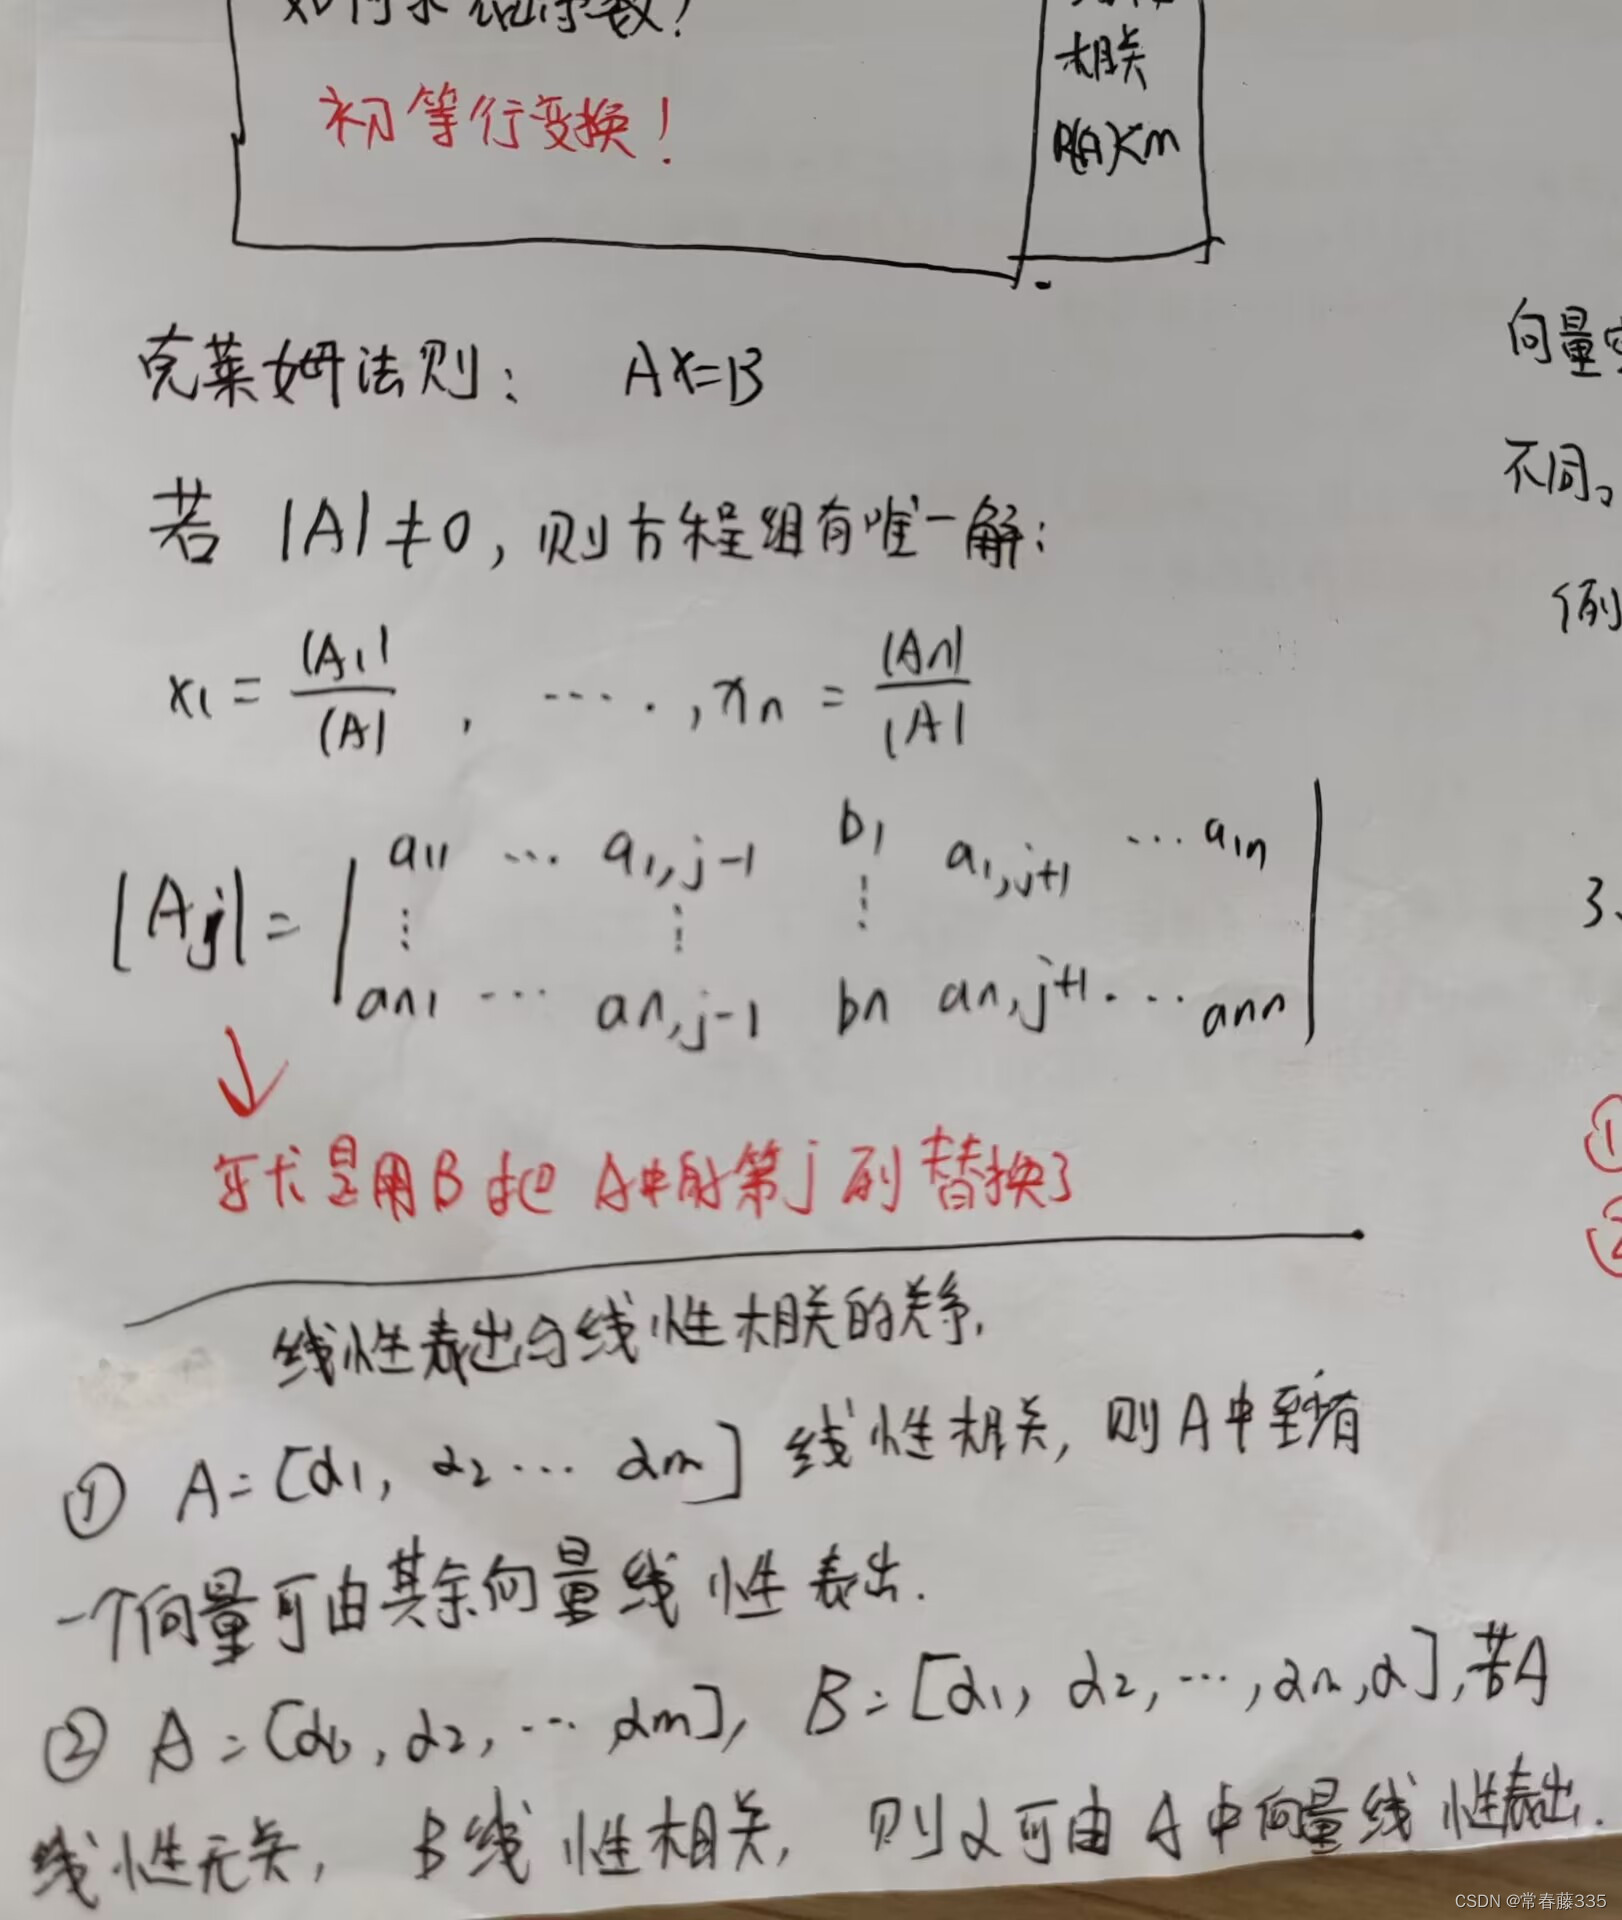 初等行变换！
相关
R(A)<m
克莱姆法则： AX=B
若 |A|≠0, 则方程组有唯一解：
x1 = |A1|/|A| , ....., xn = |An|/|A|
|Aj| = | a11 ... a1,j-1 b1 a1,j+1 ... a1n
⋮ ⋮ ⋮
an1 ... an,j-1 bn an,j+1 ... ann |
↓
是用B把A中的第j列替换了
线性表出与线性相关的关系.
① A=[α1, α2 ... αm] 线性相关, 则A中至少有
一个向量可由其余向量线性表出.
② A=[α1, α2, ... αm], B=[α1, α2, ..., αm, α], 若A
线性无关, B线性相关, 则α可由A中向量线性表出.
向量
不同。
例
3、
①
②
CSDN @常春藤335